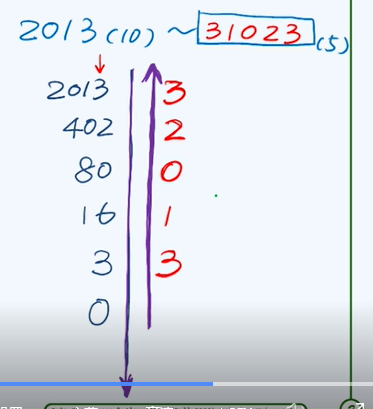 2013(10) ~ 31023(5)
2013 3
402 2
80 0
16 1
3 3
0